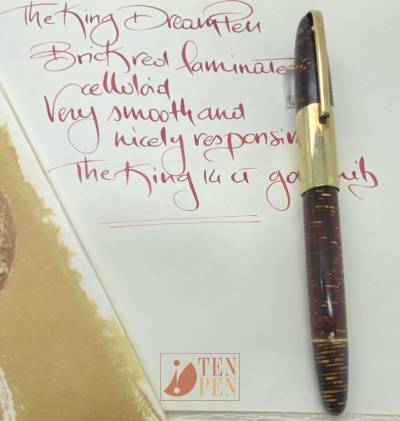 The King DreamPen
Brick red laminate
celluloid
Very smooth and
nicely responsiv
The King 14 ct go nib
TEN
PEN